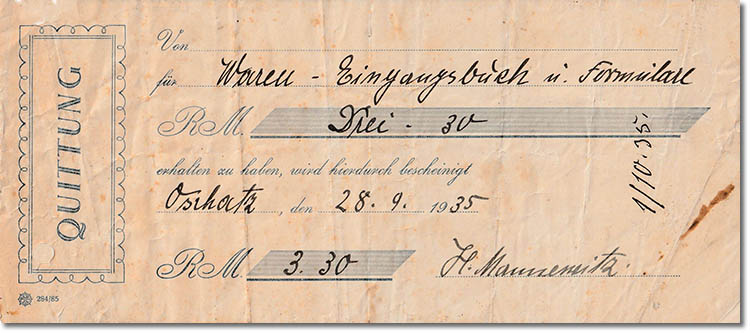 QUITTUNG
Von
für Waren - Eingangsbuch u. Formulare
RM. Drei - 30
erhalten zu haben, wird hierdurch bescheinigt
Oschatz, den 28. 9. 1935
1/10.35.
RM. 3.30
H.
284/85